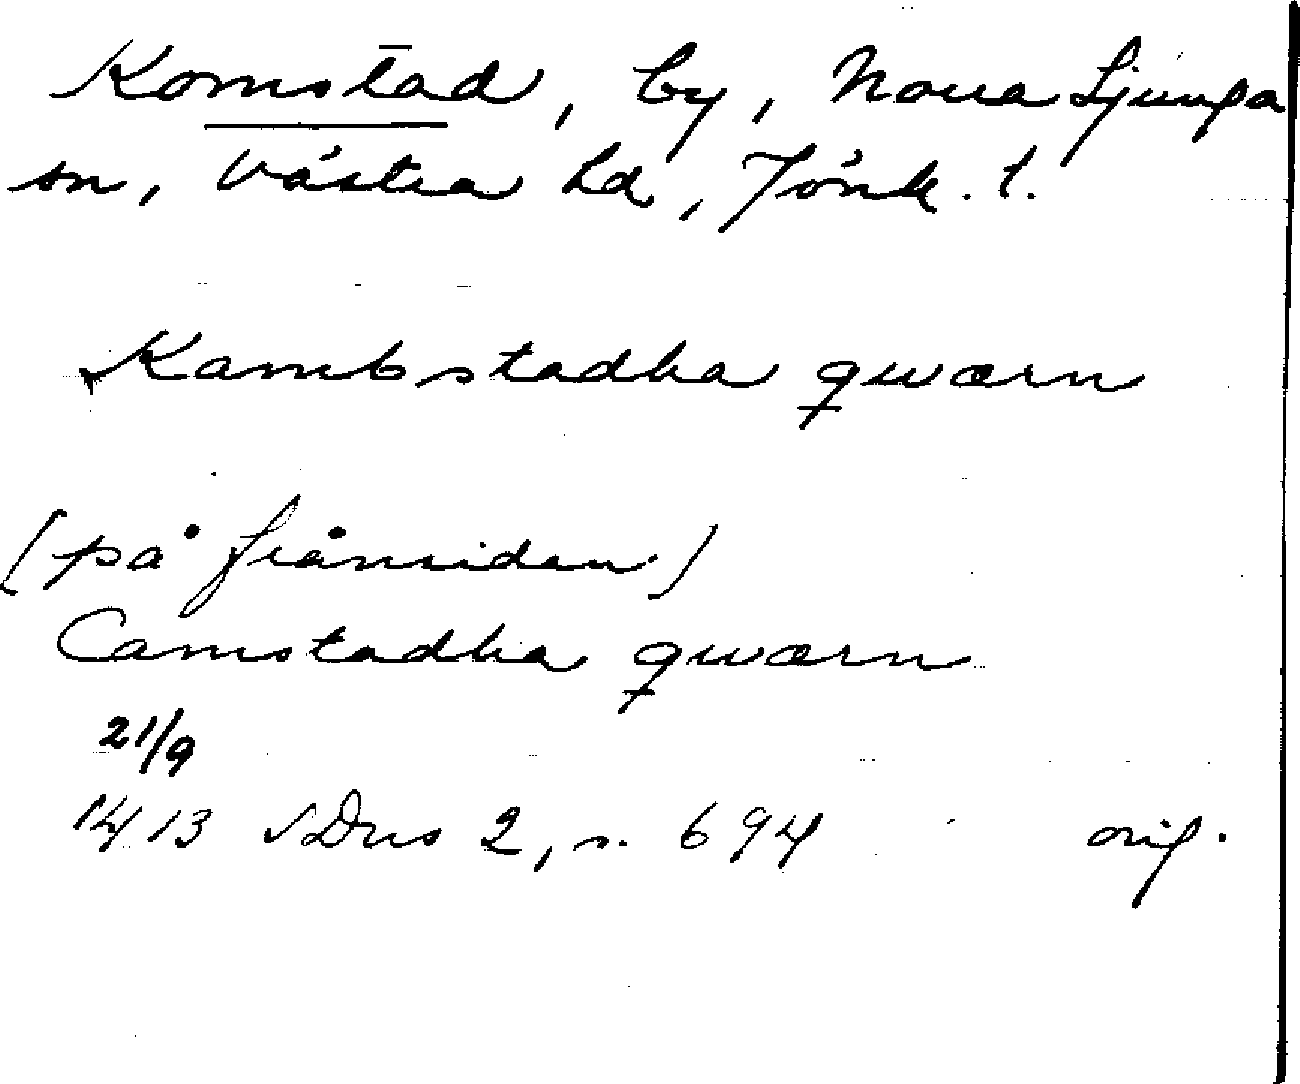 Komstad, by, Norra Ljunga
sn, Västra hd, Jönk. l.
Kambstadha qwærn
(på frånsidan)
Camstadha qwærn
21/9
1413 SDns 2, s. 694 orig.